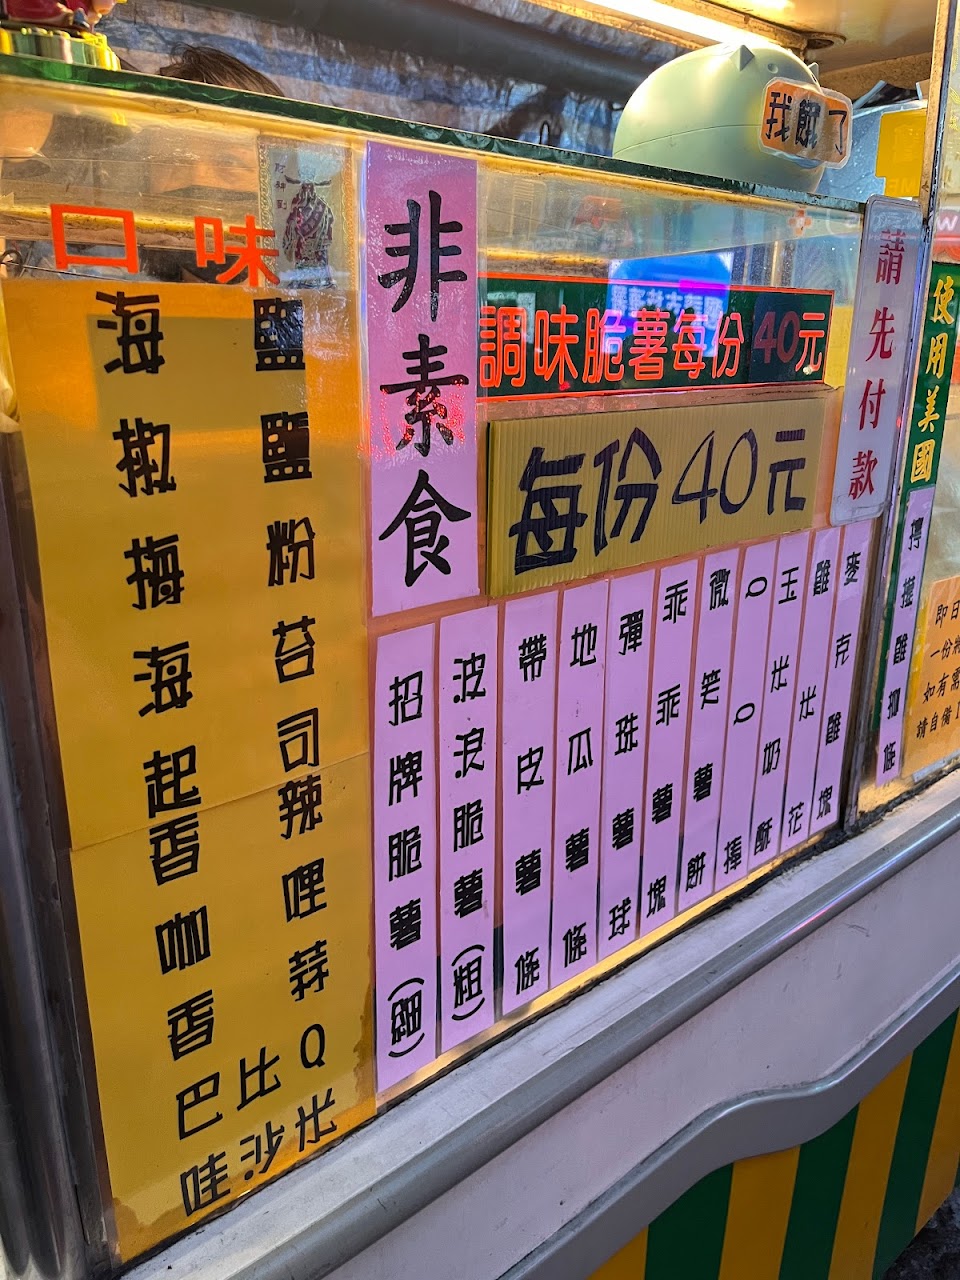 我餓了
口味
海鹽
椒鹽
梅粉
海苔
起司
香辣
咖哩
香蒜
巴比Q
哇沙米
非素食
調味脆薯每份40元
每份40元
招牌脆薯(細)
波浪脆薯(粗)
帶皮薯條
地瓜薯條
彈珠薯球
乖乖薯塊
微笑薯餅
QQ棒
玉米奶酥
雞米花
麥克雞塊
請先付款
使用美國
檸檬雞柳條
即日
一份
如有需
請自備